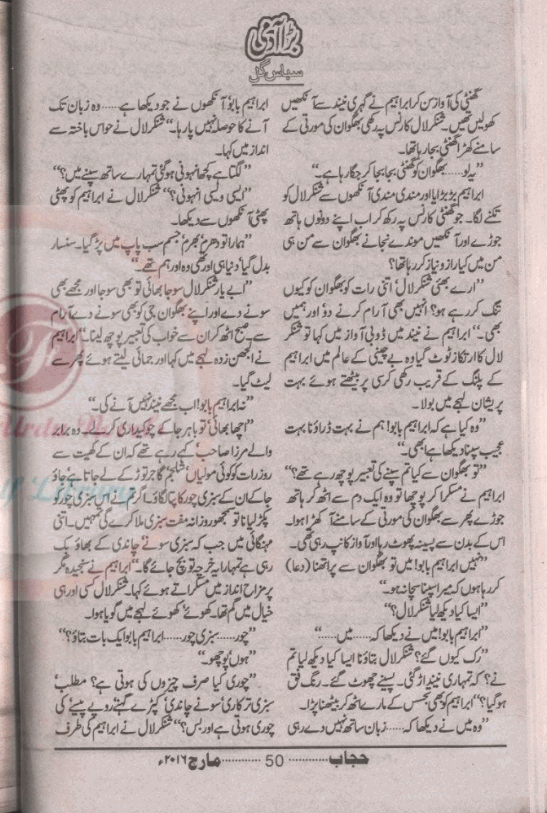 بڑا آدمی
سباس گل
گھنٹی کی آواز سن کر ابراہیم نے گہری نیند سے آنکھیں
کھولیں تھیں۔ شنکر لال کارنس پہ رکھی بھگوان کی مورتی کے
سامنے کھڑا گھنٹی بجا رہا تھا۔
”یہ لو...... بھگوان کو گھنٹی بجا بجا کر جگا رہا ہے۔“
ابراہیم بڑبڑایا اور مندی مندی آنکھوں سے شنکر لال کو
تکنے لگا۔ جو گھنٹی کارنس پہ رکھ کر اب اپنے دونوں ہاتھ
جوڑے اور آنکھیں موندے نجانے بھگوان سے من ہی
من میں کیا راز و نیاز کر رہا تھا؟
”ارے بھئی شنکر لال‘ اتنی رات کو بھگوان کو کیوں
تنگ کر رہے ہو؟ انہیں بھی آرام کرنے دو اور ہمیں
بھی۔“ ابراہیم نے نیند میں ڈوبی آواز میں کہا تو شنکر
لال کا ارتکاز ٹوٹ گیا وہ بے چینی کے عالم میں ابراہیم
کے پلنگ کے قریب رکھی کرسی پر بیٹھتے ہوئے بہت
پریشان لہجے میں بولا۔
”وہ کیا ہے کہ ابراہیم بابو! ہم نے بہت ڈراؤنا بہت
عجیب سپنا دیکھا ہے ابھی۔“
”تو بھگوان سے کیا تم سپنے کی تعبیر پوچھ رہے تھے؟“
ابراہیم نے مسکرا کر پوچھا تو وہ ایک دم سے اٹھ کر ہاتھ
جوڑے پھر سے بھگوان کی مورتی کے سامنے آ کھڑا ہوا۔
اس کے بدن سے پسینہ پھوٹ رہا اور آواز کانپ رہی تھی۔
”نہیں ابراہیم بابو! میں تو بھگوان سے پراتھنا (دعا)
کر رہا ہوں کہ میرا سپنا سچا نہ ہو۔“
”ایسا کیا دیکھ لیا شنکر لال؟“
”ابراہیم بابو! میں نے دیکھا کہ...... میں......“
”رک کیوں گئے؟ شنکر لال بتاؤ نا ایسا کیا دیکھ لیا تم
نے؟ کہ تمہاری نیند اڑ گئی۔ پسینے چھوٹ گئے۔ رنگ فق
ہو گیا؟“ ابراہیم کو بھی تجسس کے مارے اٹھ کر بیٹھنا پڑا۔
”وہ میں نے دیکھا کہ...... زبان ساتھ نہیں دے رہی
ابراہیم بابو! آنکھوں نے جو دیکھا ہے...... وہ زبان تک
آنے کا حوصلہ نہیں پا رہا۔“ شنکر لال نے حواس باختہ سے
انداز میں کہا۔
”لگتا ہے کچھ انہونی ہو گئی تمہارے ساتھ سپنے میں؟“
”ایسی ویسی انہونی؟“ شنکر لال نے ابراہیم کو پھٹی
پھٹی آنکھوں سے دیکھا۔
”ہمارا تو دھرم‘ بھرم‘ جسم سب پاپ میں پڑ گیا۔ سنسار
بدل گیا‘ دنیا ہی اور تھی وہ اور ہم تھے۔“
”ابے یار شنکر لال سو جا بھائی‘ تو بھی سو جا اور مجھے بھی
سونے دے اور اپنے بھگوان جی کو بھی سونے دے آرام
سے۔ صبح اٹھ کر ان سے خواب کی تعبیر پوچھ لینا۔“ ابراہیم
نے الجھن زدہ لہجے میں کہا اور جمائی لیتے ہوئے پھر سے
لیٹ گیا۔
”نہ ابراہیم بابو! اب مجھے نیند نہیں آنے کی۔“
”اچھا بھائی‘ تو باہر جا کے چوکیداری کر لے۔ وہ برابر
والے مرزا صاحب کہہ رہے تھے کہ ان کے کھیت سے
روز رات کو کوئی مولیاں‘ شلجم‘ گاجر توڑ کے لے جاتا ہے جاؤ
جا کے ان کے سبزی چور کا پتا لگاؤ۔ اگر تم نے اس سبزی چور کو
پکڑ لیا نا تو سمجھو روزانہ مفت سبزی ملا کرے گی تمہیں۔ اتنی
مہنگائی میں جب کہ سبزی سونے‘ چاندی کے بھاؤ بک
رہی ہے تمہارا یہ خرچہ تو بچ جائے گا۔“ ابراہیم نے سنجیدہ مگر
پر مزاح انداز میں مسکراتے ہوئے کہا۔ شنکر لال کسی اور ہی
خیال میں گم تھا۔ کھوئے‘ کھوئے لہجے میں گویا ہوا۔
”چور.... سبزی چور...... ابراہیم بابو ایک بات بتاؤ؟“
”ہوں‘ پوچھو۔“
”چوری کیا صرف چیزوں کی ہوتی ہے؟ مطلب‘
سبزی ترکاری‘ سونے چاندی‘ کپڑے گہنے‘ روپے پیسے کی
چوری ہوتی ہے اور بس؟“ شنکر لال نے ابراہیم کی طرف
حجاب ............ 50 ............ مارچ ۲۰۱۶ء